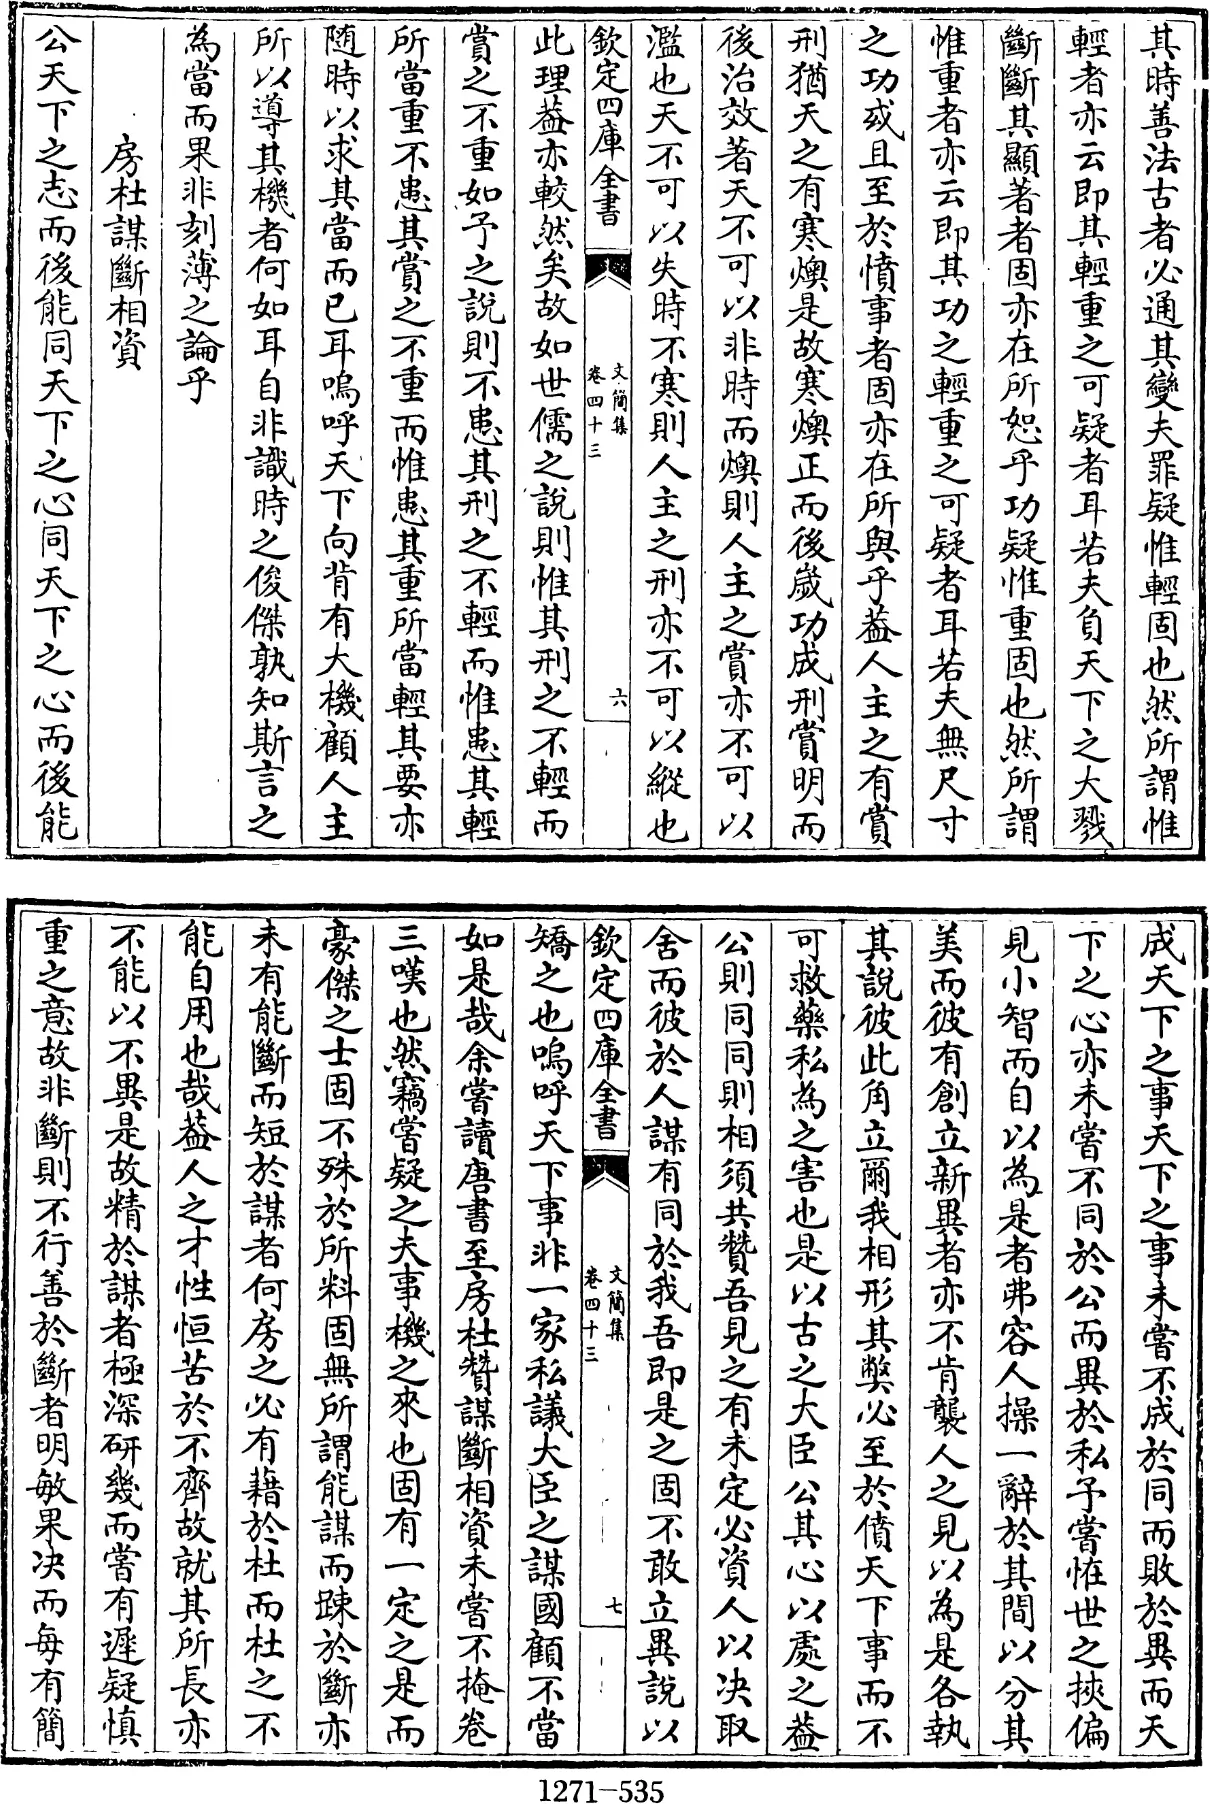 其時善法古者必通其變夫罪疑惟輕固也然所謂惟
輕者亦云即其輕重之可疑者耳若夫負天下之大戮
斷斷其顯著者固亦在所恕乎功疑惟重固也然所謂
惟重者亦云即其功之輕重之可疑者耳若夫無尺寸
之功或且至於憤事者固亦在所與乎葢人主之有賞
刑猶天之有寒燠是故寒燠正而後嵗功成刑賞明而
後治效著天不可以非時而燠則人主之賞亦不可以
濫也天不可以失時不寒則人主之刑亦不可以縱也
欽定四庫全書
文簡集
卷四十三
六
此理葢亦較然矣故如世儒之說則惟其刑之不輕而
賞之不重如予之說則不患其刑之不輕而惟患其輕
所當重不患其賞之不重而惟患其重所當輕其要亦
随時以求其當而已耳嗚呼天下向背有大機顧人主
所以導其機者何如耳自非識時之俊傑孰知斯言之
為當而果非刻薄之論乎
房杜謀斷相資
公天下之志而後能同天下之心同天下之心而後能
成天下之事天下之事未嘗不成於同而敗於異而天
下之心亦未嘗不同於公而異於私予嘗恠世之挾偏
見小智而自以為是者弗容人操一辭於其間以分其
美而彼有創立新異者亦不肯襲人之見以為是各執
其說彼此角立爾我相形其獘必至於僨天下事而不
可救藥私為之害也是以古之大臣公其心以處之葢
公則同同則相須共贊吾見之有未定必資人以决取
舍而彼於人謀有同於我吾即是之固不敢立異說以
欽定四庫全書
文簡集
卷四十三
七
矯之也嗚呼天下事非一家私議大臣之謀國顧不當
如是哉余嘗讀唐書至房杜贊謀斷相資未嘗不掩卷
三嘆也然竊嘗疑之夫事機之來也固有一定之是而
豪傑之士固不殊於所料固無所謂能謀而踈於斷亦
未有能斷而短於謀者何房之必有藉於杜而杜之不
能自用也哉葢人之才性恒苦於不齊故就其所長亦
不能以不異是故精於謀者極深研幾而嘗有遲疑慎
重之意故非斷則不行善於斷者明敏果决而每有簡
1271-535